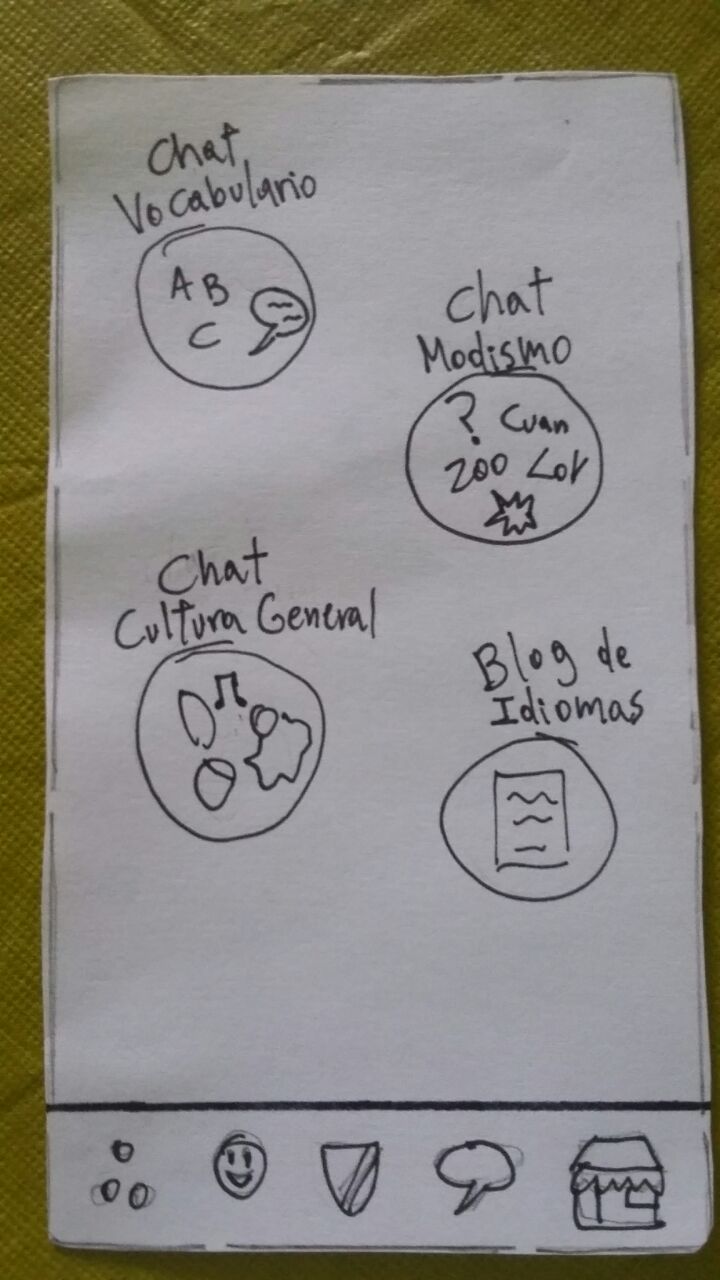 Chat
Vocabulario
A B
C
Chat
Modismo
? Cuan
200 Lor
Chat
Cultura General
Blog de
Idiomas